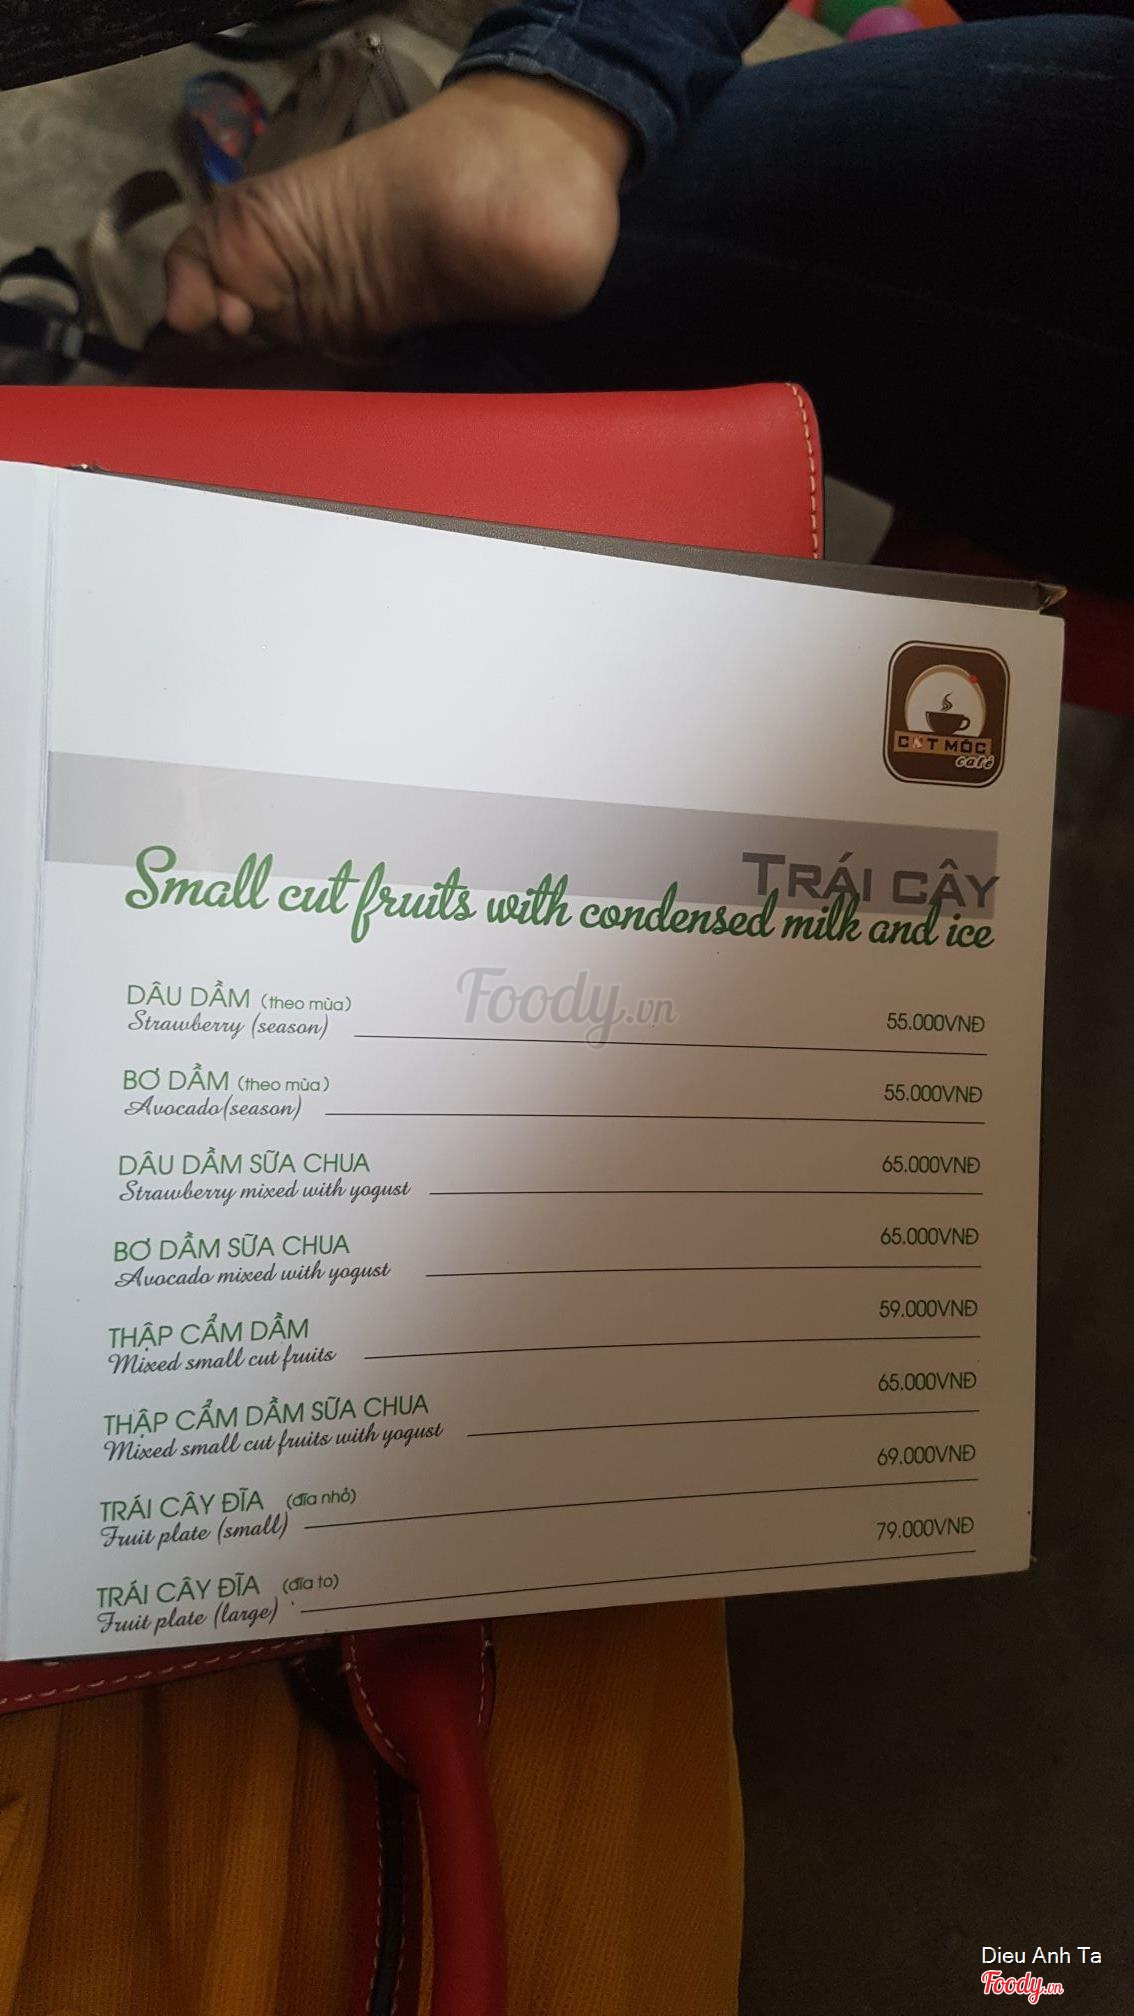 CỘT MỐC
café
TRÁI CÂY
Small cut fruits with condensed milk and ice
Foody.vn
DÂU DẦM (theo mùa)
Strawberry (season)
55.000VNĐ
BƠ DẦM (theo mùa)
Avocado(season)
55.000VNĐ
DÂU DẦM SỮA CHUA
Strawberry mixed with yogust
65.000VNĐ
BƠ DẦM SỮA CHUA
Avocado mixed with yogust
65.000VNĐ
THẬP CẨM DẦM
Mixed small cut fruits
59.000VNĐ
THẬP CẨM DẦM SỮA CHUA
Mixed small cut fruits with yogust
65.000VNĐ
TRÁI CÂY ĐĨA (đĩa nhỏ)
Fruit plate (small)
69.000VNĐ
TRÁI CÂY ĐĨA (đĩa to)
Fruit plate (large)
79.000VNĐ
Dieu Anh Ta
Foody.vn